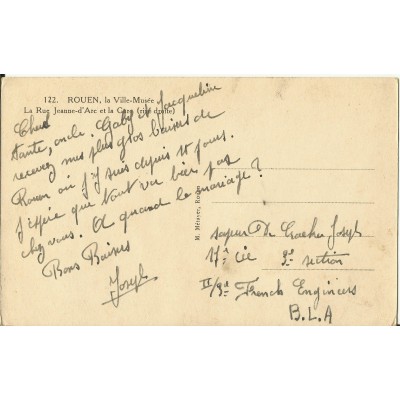 122. ROUEN, la Ville-Musée
La Rue Jeanne-d'Arc et la Gare (rive droite)
Chers
tante, oncle. Gaby et Jacqueline
recevez mes plus gros baisers de
Rouen où j'y suis depuis 11 jours.
J'espère que tout va bien par
chez vous. A quand le mariage ?
Bons Baisers
Joseph
sapeur De Joseph
17è Cie 3è section
II/ French Engineers
B.L.A